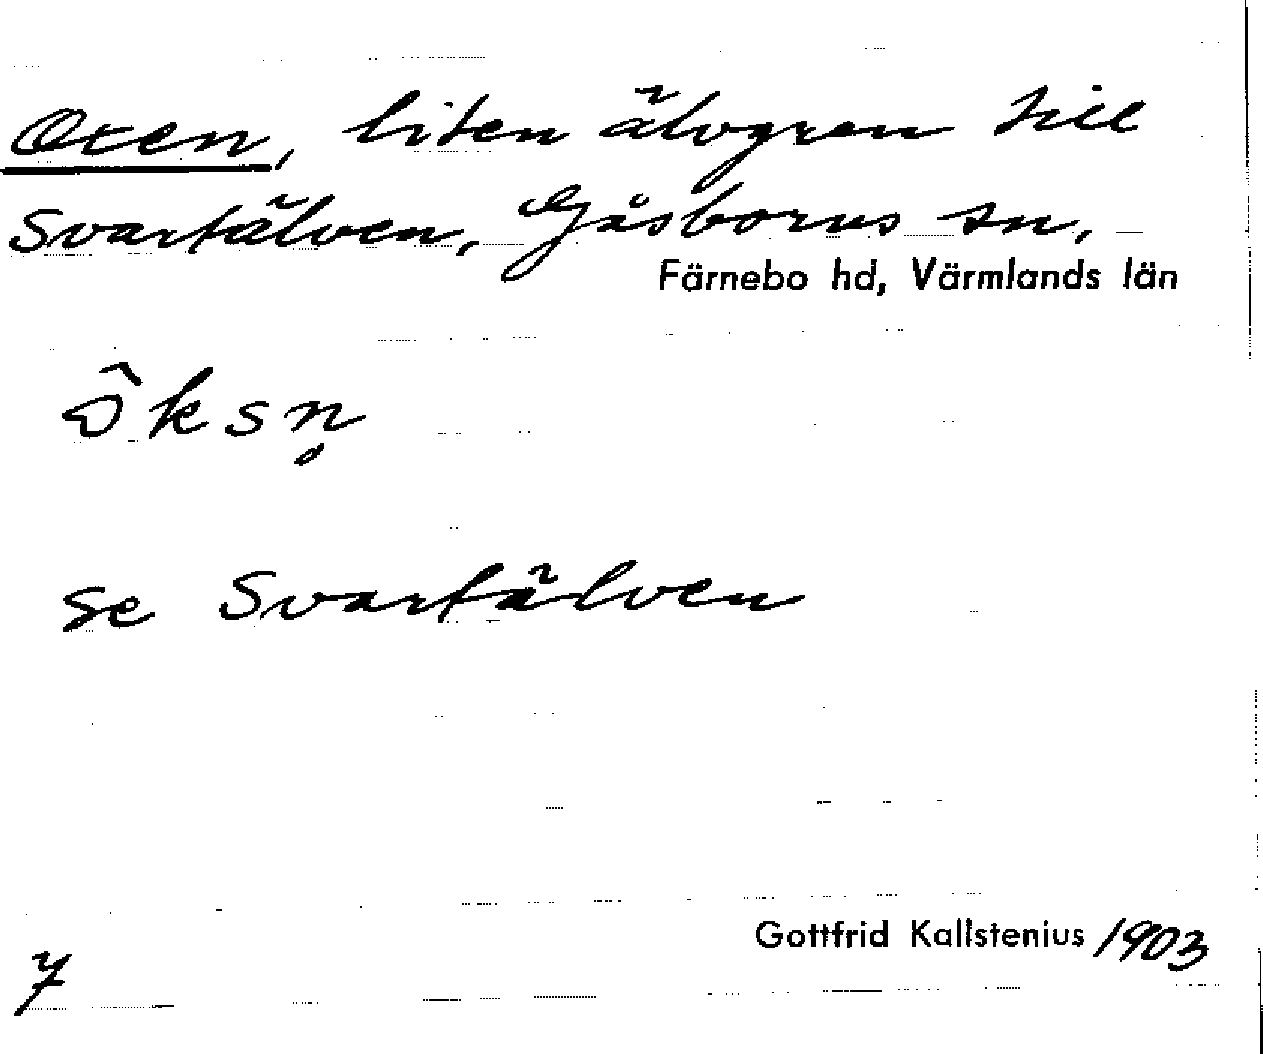 Oxen, liten älvgren till
Svartälven, Gåsborns sn,
Färnebo hd, Värmlands län
ôksn̥
se Svartälven
Gottfrid Kallstenius 1903
7